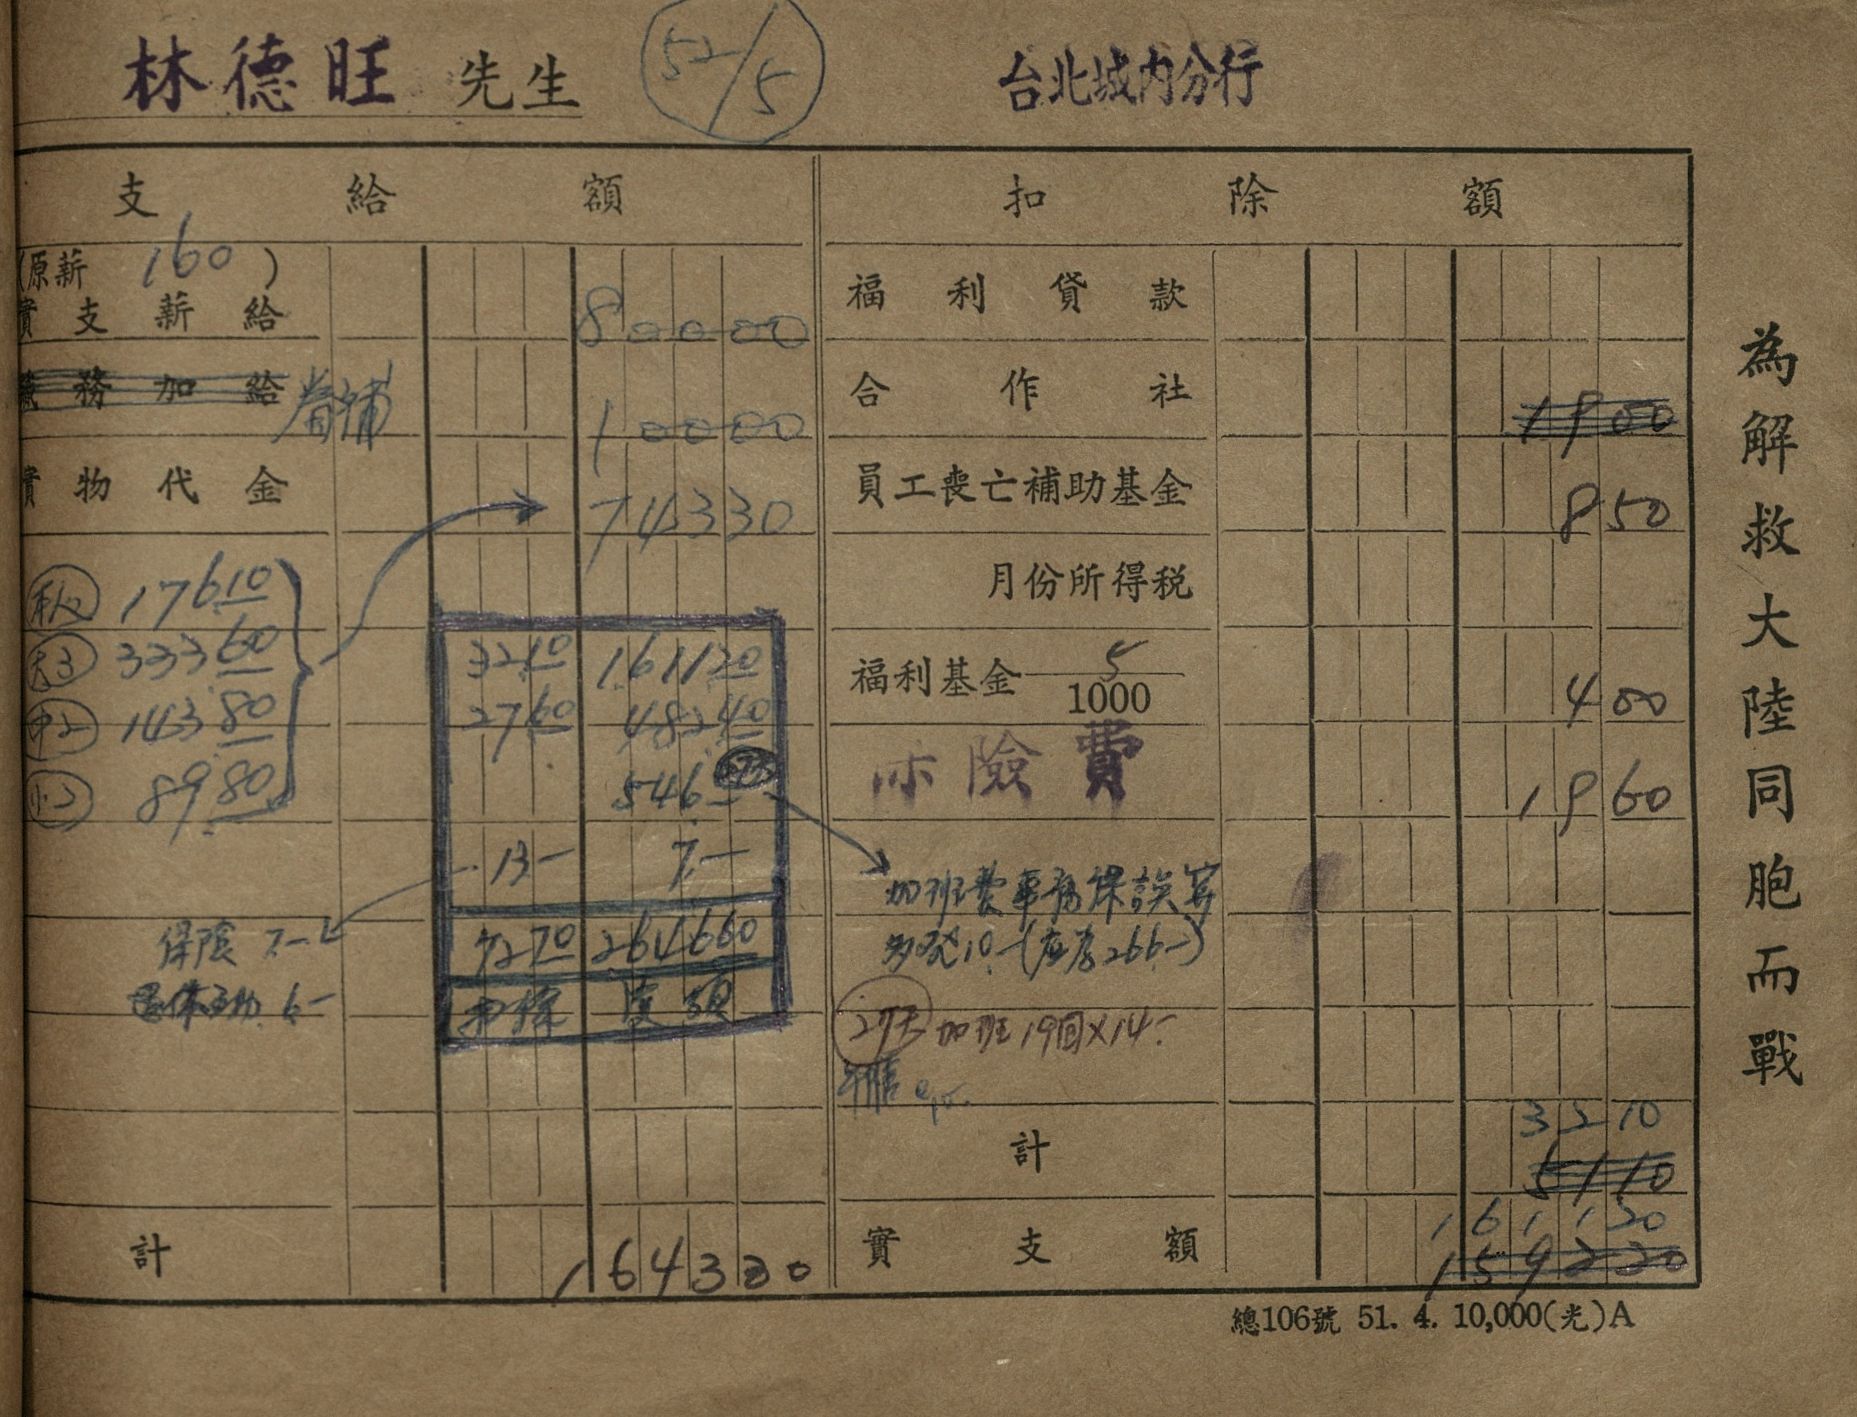 林德旺 先生
52/5
台北城內分行
支給額
扣除額
(原薪 160)
實支薪給 80000
務加給 眷補 10000
實物代金 74330
本人 17610
大3 33360
中2 14380
小2 8980
3210 161120
2760 48240
546.-
13- 7.-
7270 264660
扣除 實額
保險 7.-
團体互助 6.-
計 164330
福利貸款
合作社 1900
員工喪亡補助基金 850
月份所得稅
福利基金 5/1000 400
險費 1960
加班費事務
多発10.-(應為266.-)
27天 加班19回×14.-
計 3210
5110
實支額 161120
159220
為解救大陸同胞而戰
總106號 51. 4. 10,000(光)A